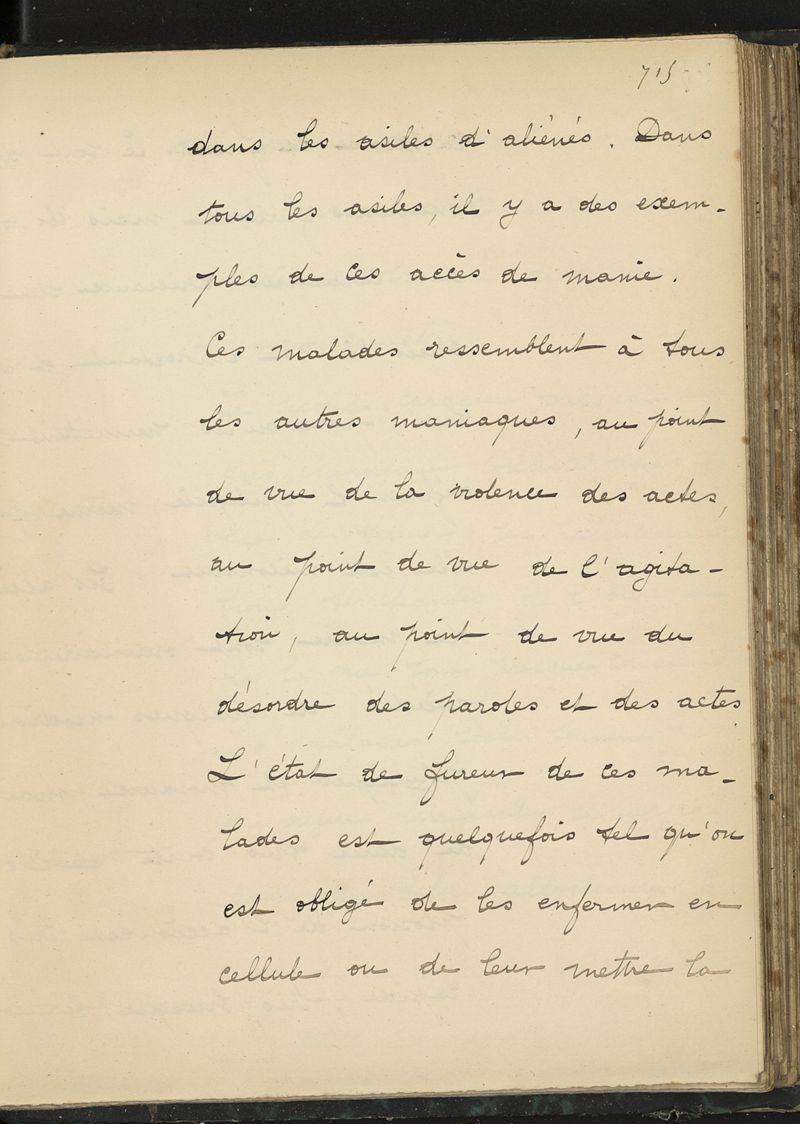 715
dans les asiles d'aliénés. Dans
tous les asiles, il y a des exem-
ples de ces accès de manie.
Ces malades ressemblent à tous
les autres maniaques, au point
de vue de la violence des actes,
au point de vue de l'agita-
tion, au point de vue du
désordre des paroles et des actes
L'état de fureur de ces ma-
lades est quelquefois tel qu'on
est obligé de les enfermer en
cellule ou de leur mettre la